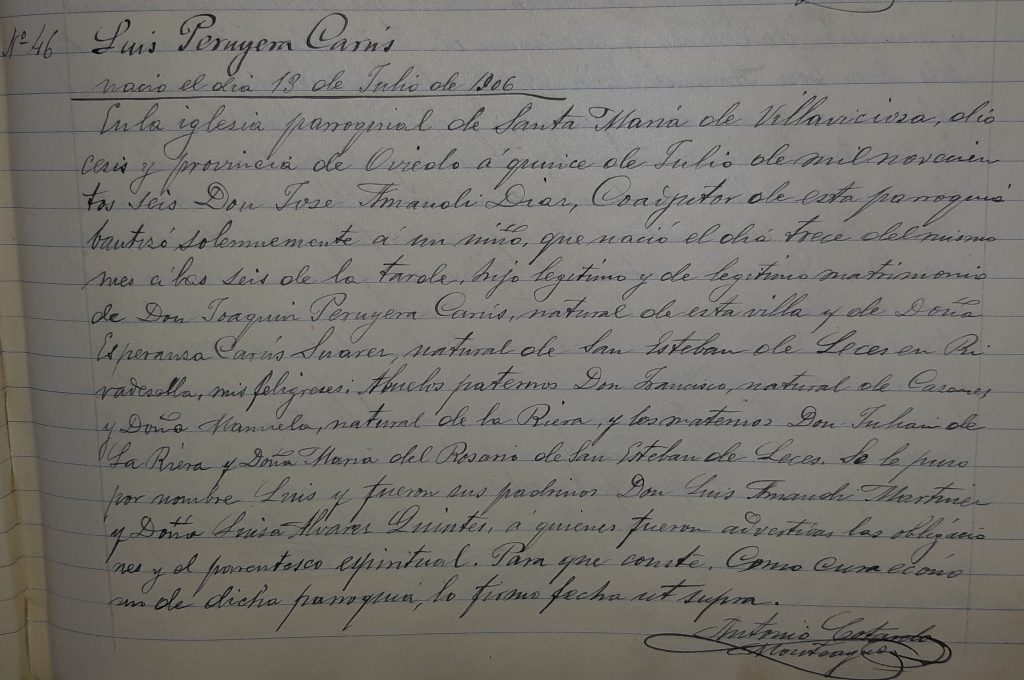 Nº 46 Luis Peruyera Carús
nació el dia 13 de Julio de 1906
En la iglesia parroquial de Santa María de Villaviciosa, dió
cesis y provincia de Oviedo á quince de Julio de mil novecien
tos seis Don Jose Amandi Diaz, Coadjutor de esta parroquia
bautizó solemnemente á un niño, que nació el día trece del mismo
mes á las seis de la tarde, hijo legítimo y de legítimo matrimonio
de Don Joaquin Peruyera Carús, natural de esta villa y de Doña
Esperanza Carús Suarez, natural de San Esteban de Leces en Ri
vadesella, mis feligreses; Abuelos paternos Don Francisco, natural de Cazanes
y Doña Manuela, natural de la Riera, y los maternos Don Julian de
La Riera y Doña María del Rosario de San Esteban de Leces. Se le puso
por nombre Luis y fueron sus padrinos Don Luis Amandi Martinez
y Doña Luisa Alvarez Quintes, á quienes fueron advertidas las obligacio
nes y el parentesco espiritual. Para que conste, Como cura ecóno
mo de dicha parroquia, lo firmo fecha ut supra.
Antonio